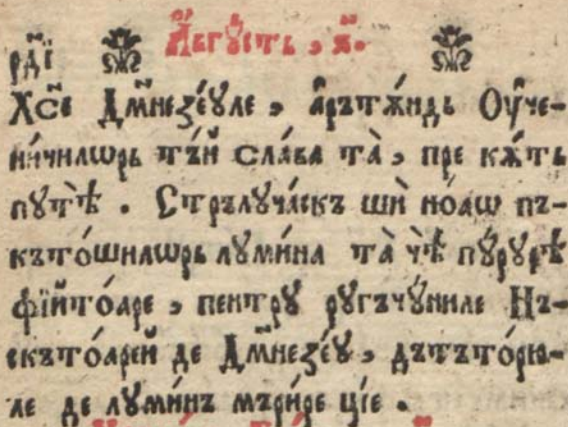 А҆́вгꙋстъ , ѕ҃.
рд҃і
Хс҃е Дм҃незе́ꙋле , а҆рътѫ́ндь Оу҆че-
ни́чилѡрь тѣ́й сла́ва та̀ , пре кѫ́ть
пꙋтѣ̀ . Стрълꙋча́скъ шѝ но́аѡ пъ-
къто́шилѡрь лꙋми́на та̀ ч̾ѣ пꙋ́рꙋрѣ
фїйто́аре , пентрꙋ рꙋгъчꙋ́ниле Нъ-
скъто́арей де Дм҃незе́ꙋ , дътъто́рю-
ле де лꙋми́нъ мъри́ре цїе .